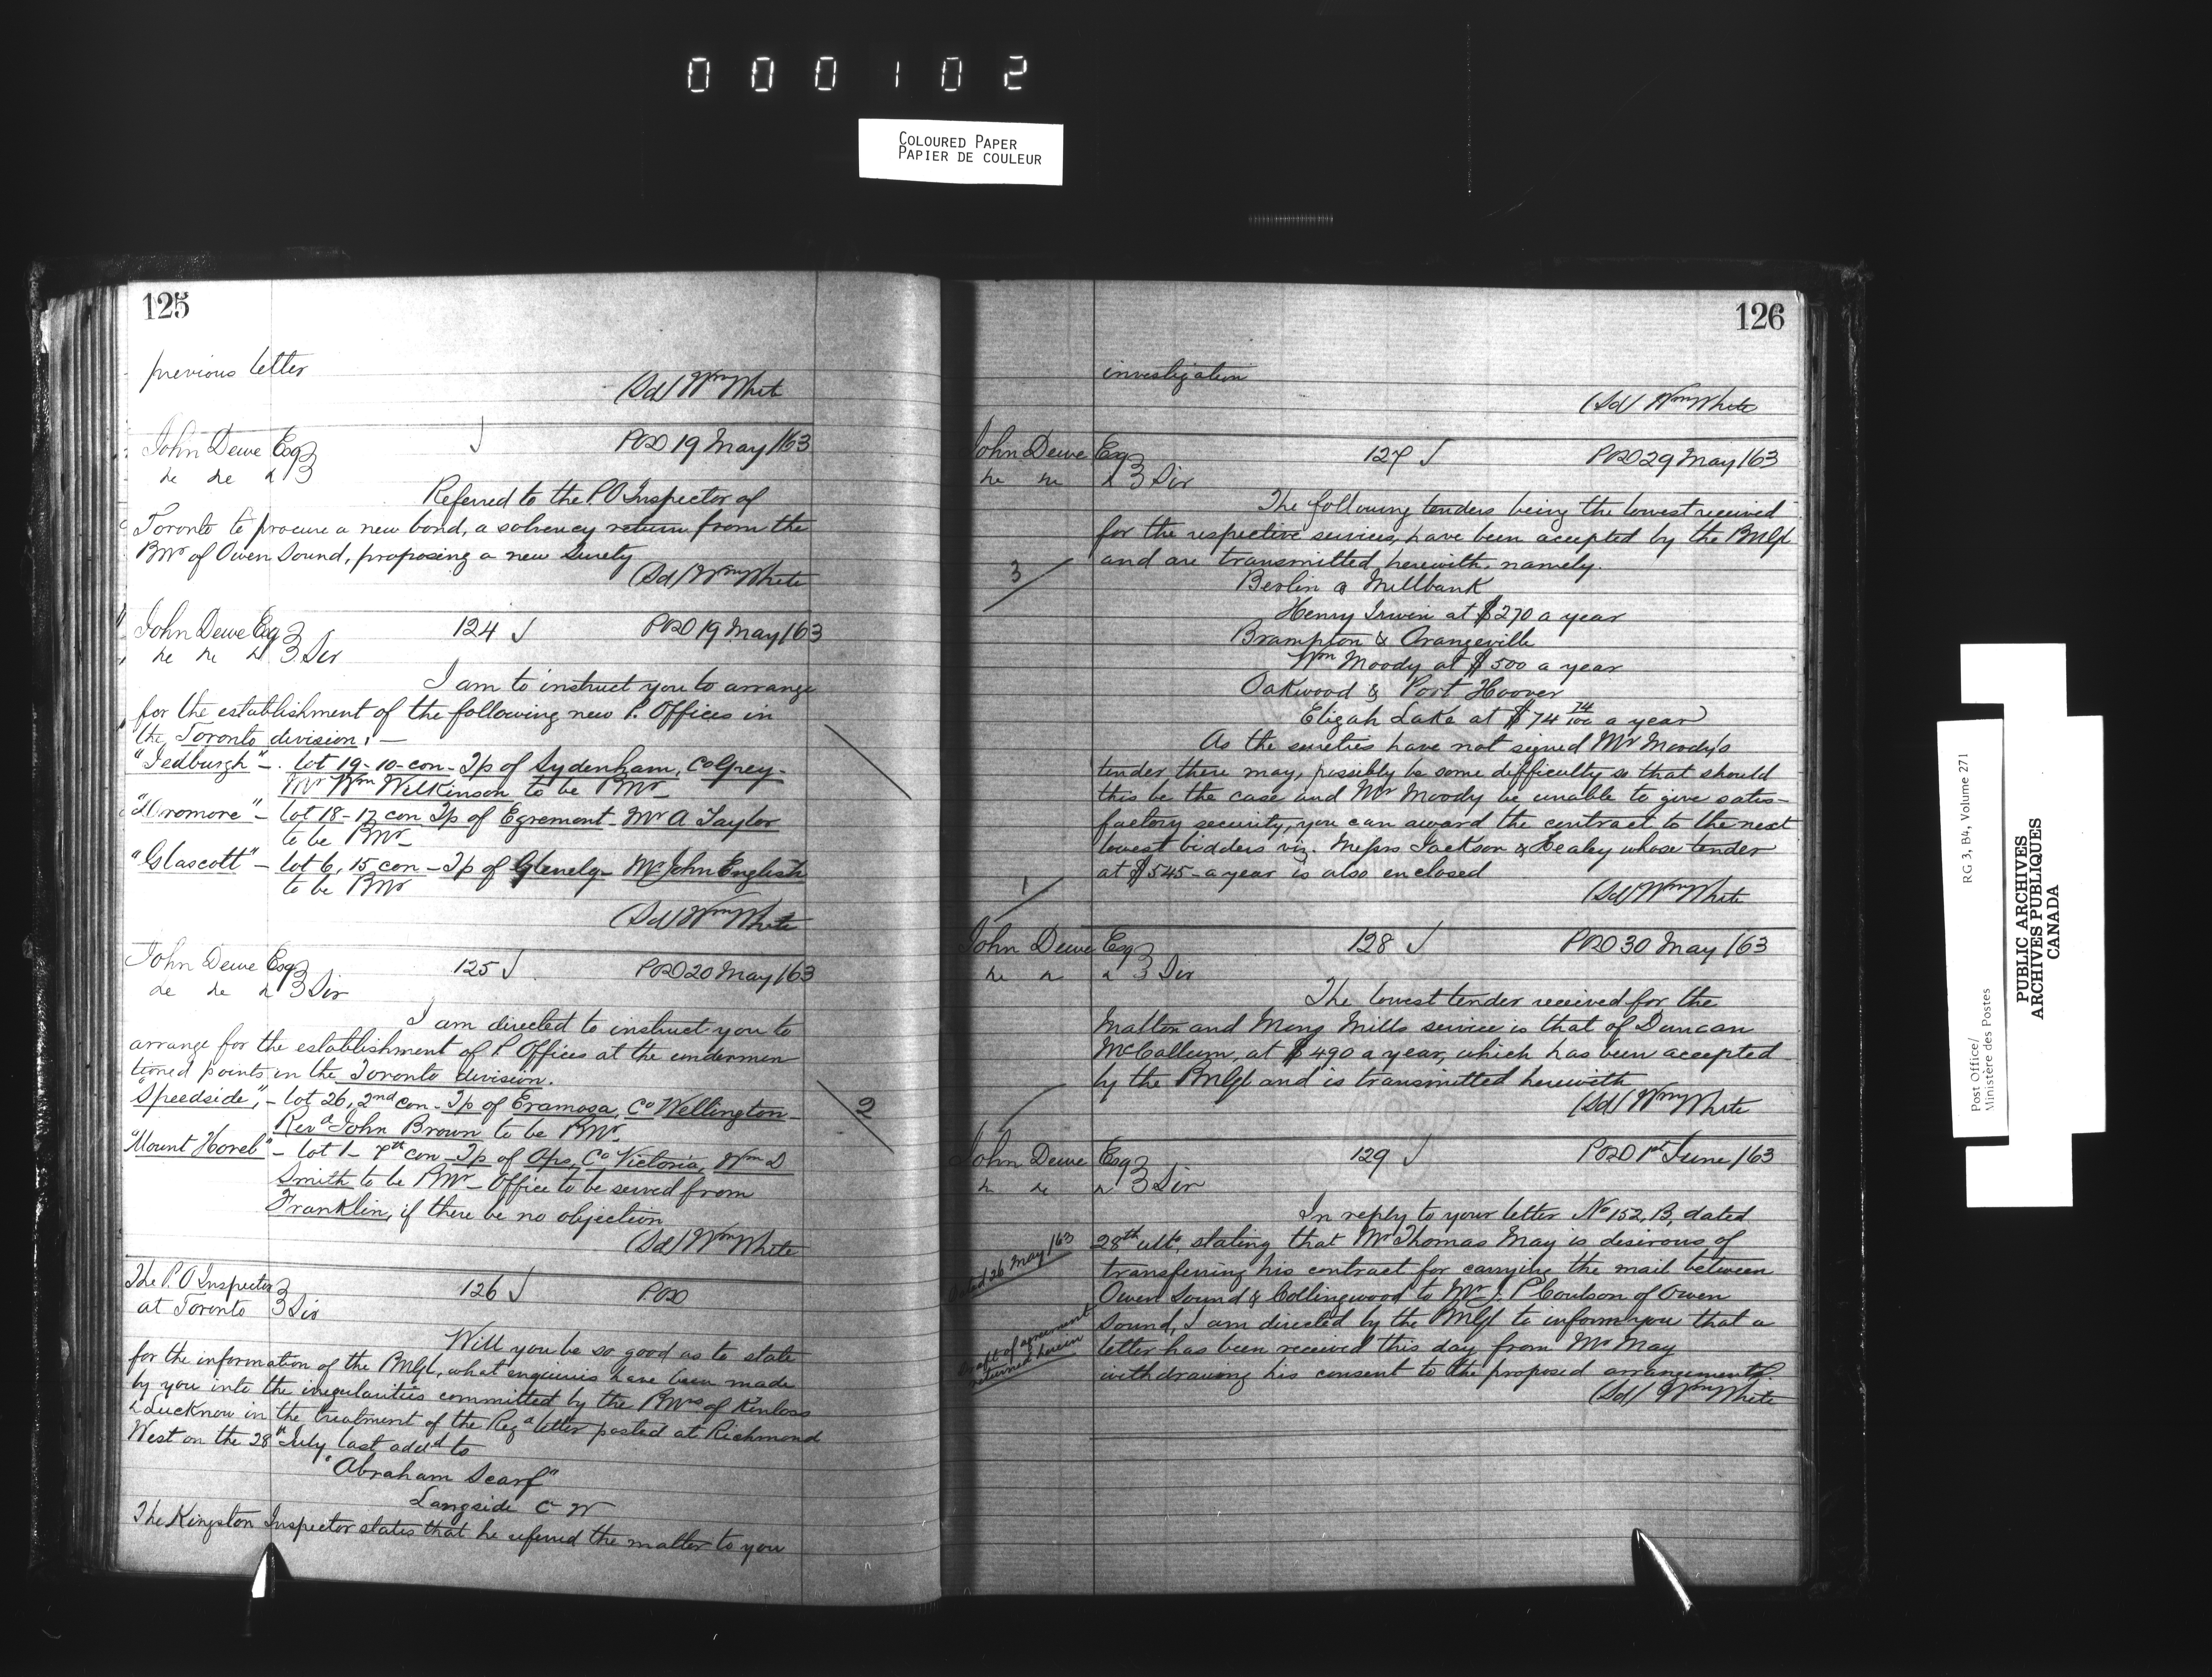 000102
COLOURED PAPER
PAPIER DE COULEUR
125
previous letter
(Sd/ Wm Whit
John Dewe Esq
POD 19 May /63
Referred to the P.O Inspector of
Toronto to procure a new bond, a solvency return from the
PMr of Owen Sound, proposing a new Surety
(Sd/ Wm White
John Dewe Esq
124 POD 19 May /63
Sir
I am to instruct you to arrange
for the establishment of the following new P. Offices in
the Toronto division, —
"Jedburgh" - lot 19-10-con- Tp of Sydenham, Co Grey-
Mr Wm Wilkinson to be PMr
"Dromore" - lot 18-17 con Tp of Egremont - Mr A Taylor
to be PMr
"Glascott" - lot 6, 15 con - Tp of Glenelg - Mr John English
to be PMr
(Sd/ Wm White
John Dewe Esq
125 POD 20 May /63
Sir
I am directed to instruct you to
arrange for the establishment of P. Offices at the undermen
tioned points in the Toronto division.
"Speedside", - lot 26, 2nd con - Tp of Eramosa, Co Wellington -
Revd John Brown to be PMr
"Mount Horeb" - lot 1 - 7th con - Tp of Ops, Co Victoria, Wm D
Smith to be PMr - Office to be served from
Franklin, if there be no objection
(Sd/ Wm White
2
The P.O Inspector
at Toronto
126 POD
Sir
Will you be so good as to state
for the information of the PMGl, what enquiries have been made
by you into the irregularities committed by the PMrs of Kinloss
& Lucknow in the treatment of the Regd letter posted at Richmond
West on the 28th July last addd to
"Abraham Scarf"
Langside C W
The Kingston Inspector states that he referred the matter to you
126
investigation
(Sd/ Wm White
John Dewe Esq
127 POD 29 May /63
Sir
The following tenders being the lowest received
for the respective services, have been accepted by the PMGl
and are transmitted herewith, namely.
3
Berlin & Millbank
Henry Irwin at $270 a year
Brampton & Orangeville
Wm Moody at $500 a year
Oakwood & Port Hoover
Elizah Lake at $74 74/100 a year
As the sureties have not signed Mr Moody's
tender there may, possibly be some difficulty so that should
this be the case and Mr Moody be unable to give satis-
factory security, you can award the contract to the next
lowest bidders viz. Messrs Jackson & Healey whose tender
at $545 - a year is also enclosed
1
(Sd/ Wm White
John Dewe Esq
128 POD 30 May /63
Sir
The lowest tender received for the
Malton and Mono Mills service is that of Duncan
McCallum, at $490 a year, which has been accepted
by the PMGl and is transmitted herewith
(Sd/ Wm White
John Dewe Esq
129 POD 1st June /63
Sir
In reply to your letter No 152, B, dated
28th ulto, stating that Mr Thomas May is desirous of
dated 26 May /63
transferring his contract for carrying the mail between
Owen Sound & Collingwood to Mr J. P Coulson of Owen
Sound, I am directed by the PMGl to inform you that a
Draft of agreement
returned herein
letter has been received this day from Mr May
withdrawing his consent to the proposed arrangement.
(Sd/ Wm White
Post Office/
Ministère des Postes
RG 3, B4, Volume 271
PUBLIC ARCHIVES
ARCHIVES PUBLIQUES
CANADA